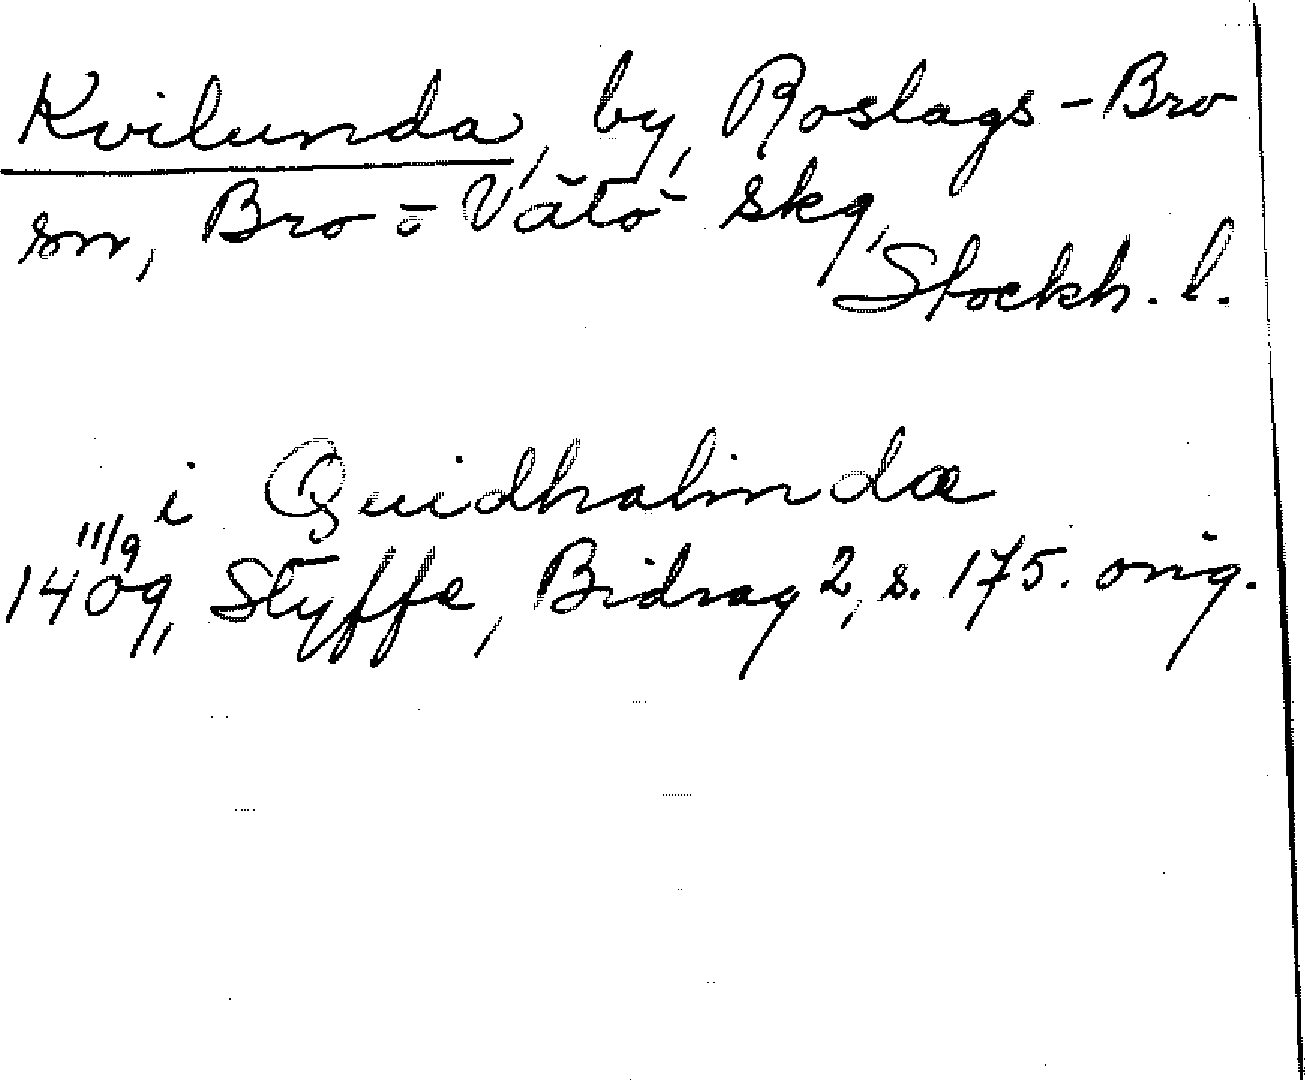 Kvilunda, by, Roslags-Bro
sn, Bro o Vätö skg,
Stockh. l.
i Quidhalindæ
11/9
1409, Styffe, Bidrag 2, s. 175. orig.